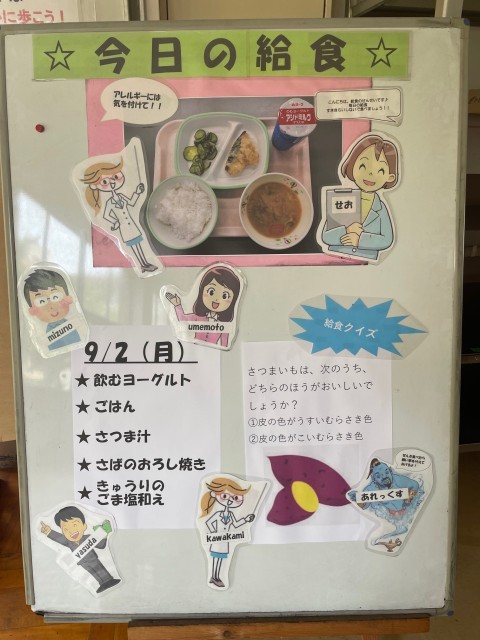 に歩こう！
☆今日の給食☆
アレルギーには
気を付けて！！
せお
mizuno
umemoto
給食クイズ
9/2（月）
★飲むヨーグルト
★ごはん
★さつま汁
★さばのおろし焼き
★きゅうりの
ごま塩和え
さつまいもは、次のうち、
どちらのほうがおいしいで
しょうか？
①皮の色がうすいむらさき色
②皮の色がこいむらさき色
あれっくす
yasuda
kawakami